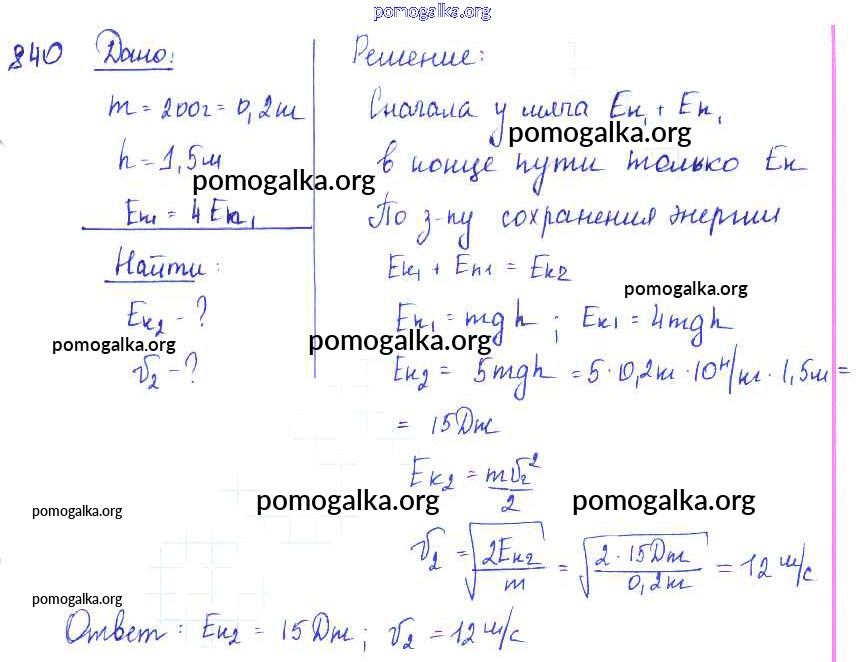 pomogalka.org
840 Дано: Решение:
m = 200г = 0,2кг Сначала у мяча Eк₁ + Eп₁
pomogalka.org
h = 1,5м в конце пути только Eк
pomogalka.org
Eк₁ = 4Eп₁ По з-ну сохранения энергии
Найти: Eк₁ + Eп1 = Eк2
pomogalka.org
Eк₂ - ? Eп₁ = mgh; Eк1 = 4mgh
pomogalka.org pomogalka.org
v₂ - ? Eк₂ = 5mgh = 5 · 0,2кг · 10 Н/кг · 1,5м =
= 15Дж
Eк₂ = mv₂²/2
pomogalka.org pomogalka.org pomogalka.org
v₂ = √(2Eк2/m) = √(2 · 15Дж/0,2кг) = 12 м/с
pomogalka.org
Ответ: Eк₂ = 15Дж; v₂ = 12 м/с